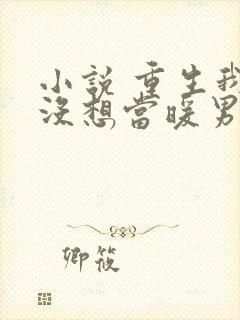 小說 重生我
沒想當暖男
卿筱